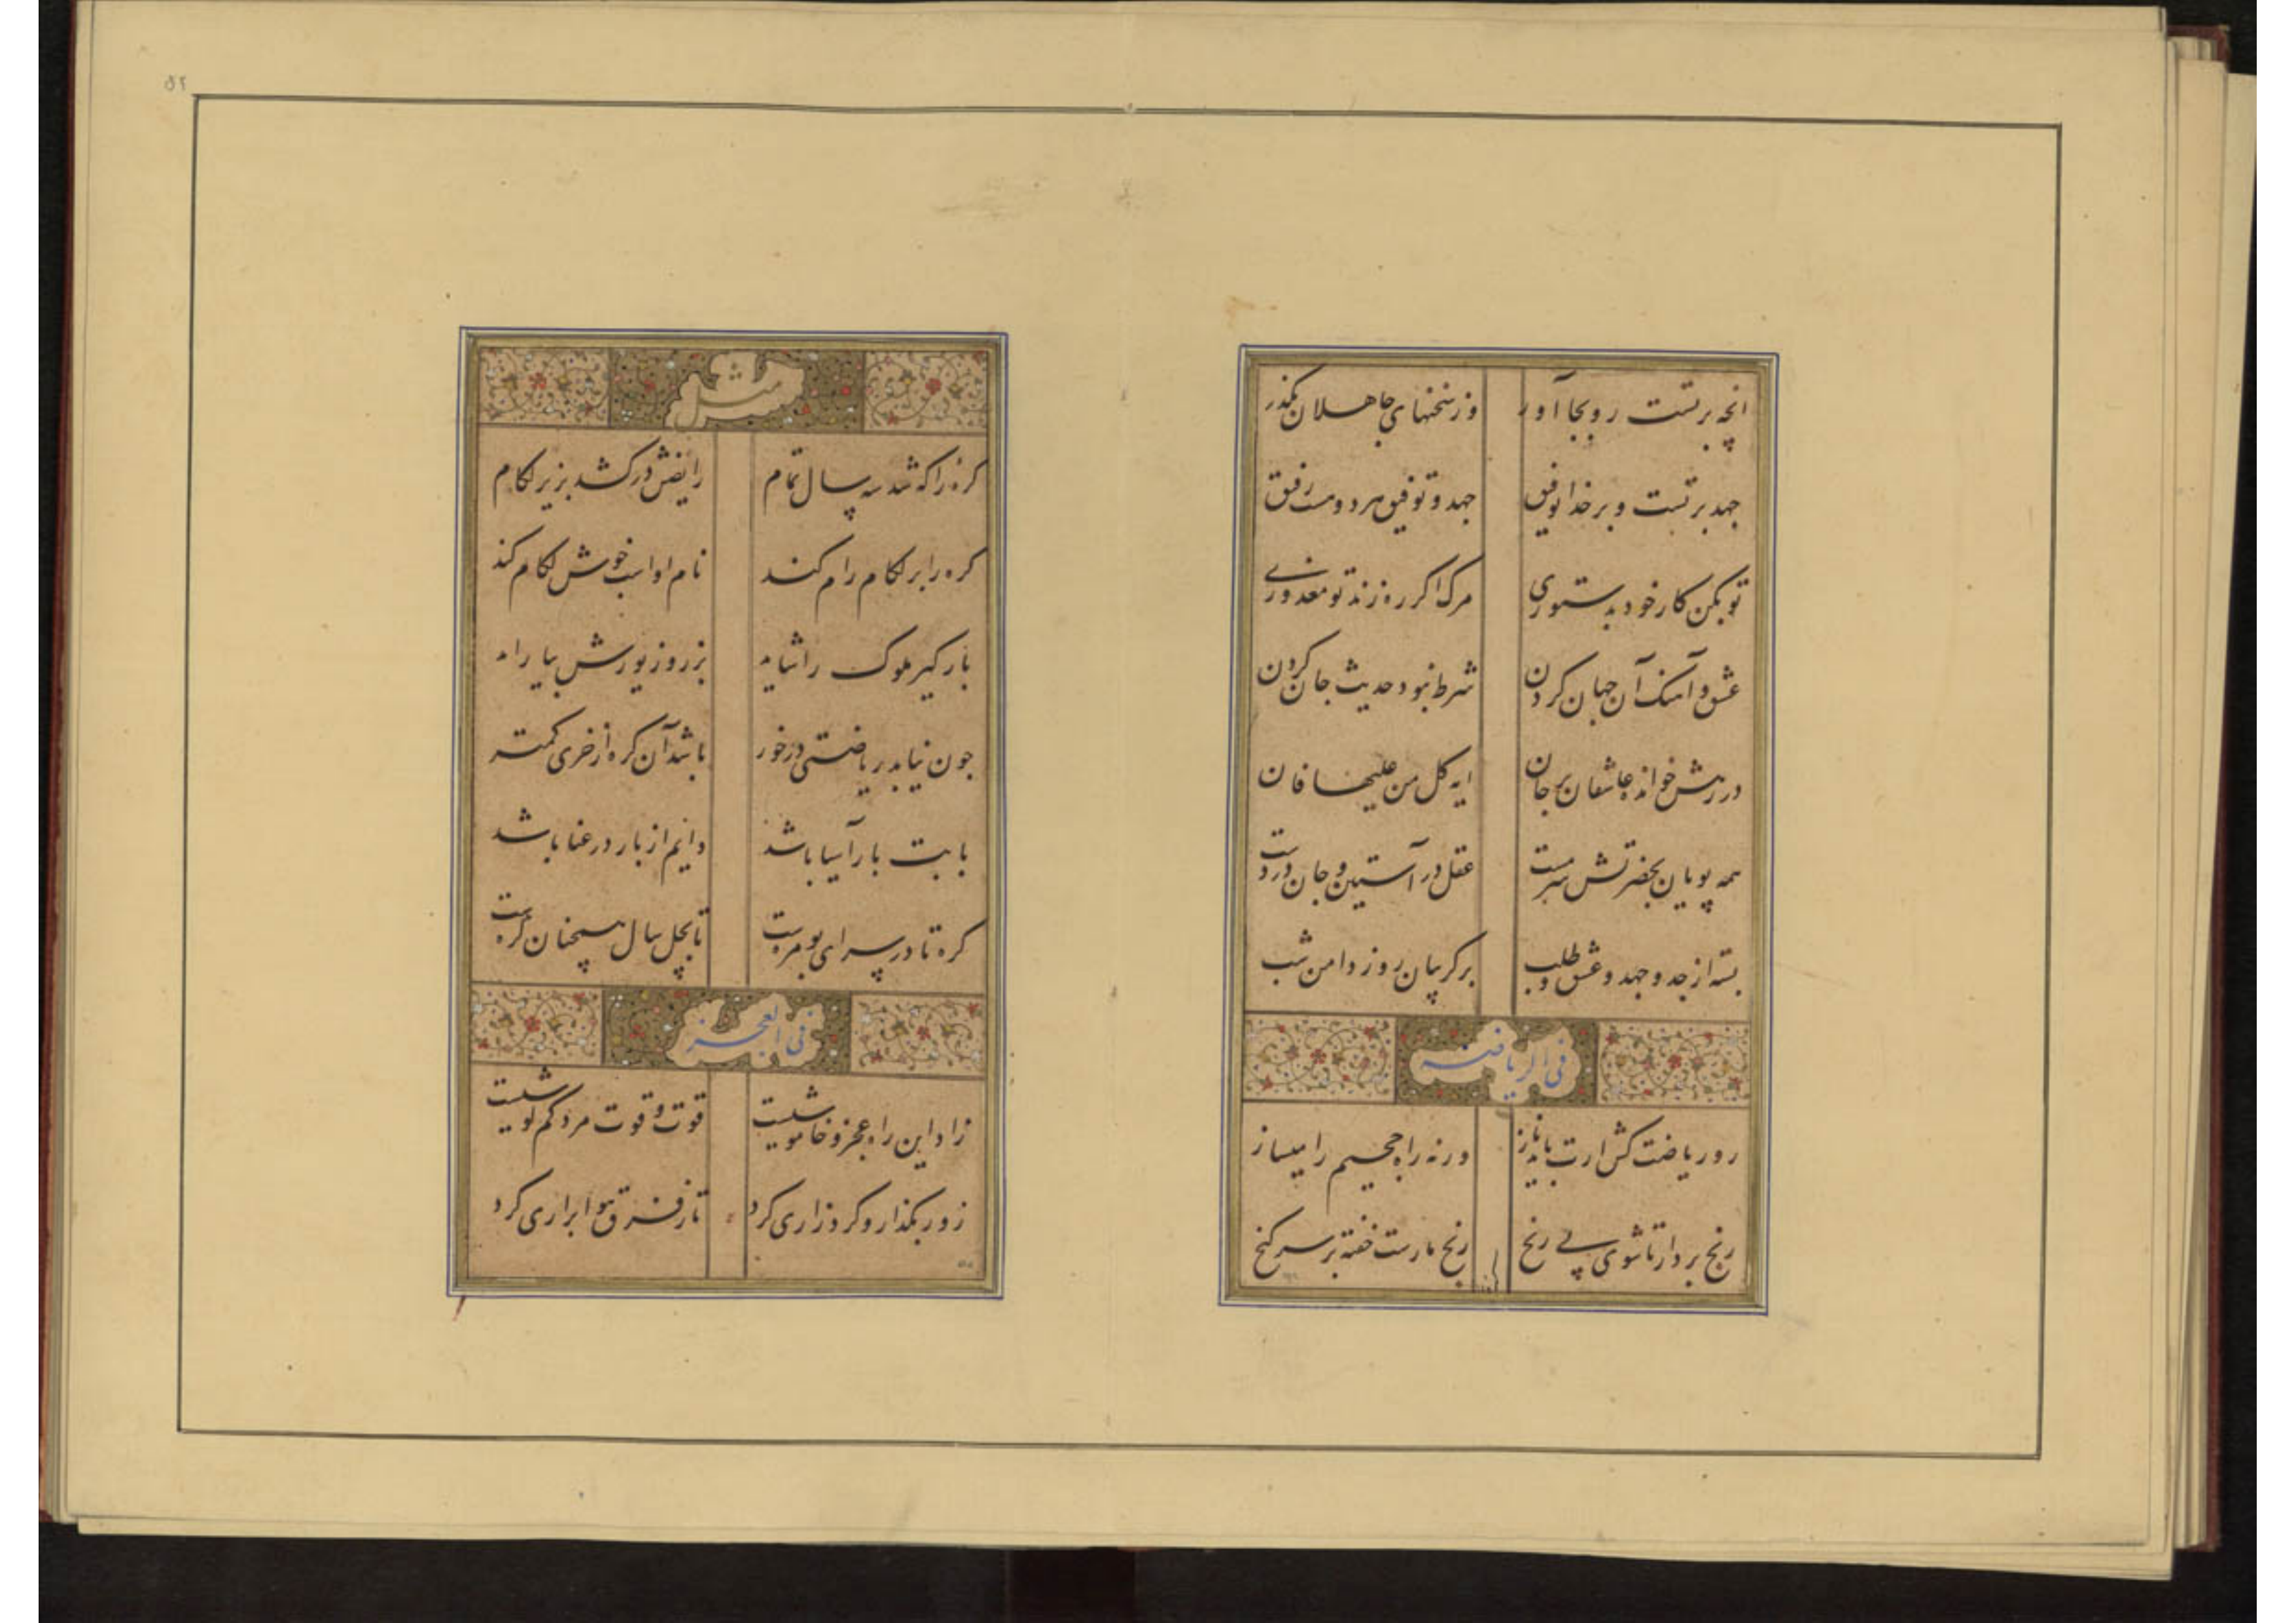 انچه بر تست رو بجا آور وز سخنهای جاهلان بگذر
جهد بر تست و بر خدا توفیق جهد و توفیق هر دو هست رفیق
تو بکن کار خود بدستوری مرک اکر ره زند تو معذوری
عشق و آهنک آن جهان کردن شرط نبود حدیث جان کردن
در رهش خوانده عاشقان بر جان ایه کل من علیها فان
همه پویان بحضرتش سرمست عقل در آستین و جان در دست
بسته از جد و جهد و عشق و طلب بر کریبان روز دامن شب
فی الریاضه
رو ریاضت کش ارت باید ناز ورنه راه جحیم را میساز
رنج بردار تا شوی بی رنج رنج مارست خفته بر سر کنج
مثل
کرهٔ را که شد سه سال تمام رایضش درکشد بزیر لکام
کره را بر لکام رام کند نام او اسب خوش لکام کند
بارکیر ملوک را شاید بزر و زیورش بیاراید
جون نیابد ریاضتی درخور باشد آن کره از خری کمتر
بابت بار آسیا باشد دایم از بار در عنا باشد
کره تا در سرای بومره است تا بچل سال همچنان کره است
فی العجز
زاد این راه عجز و خاموشیست قوت و قوت مرد کم کوشیست
زور بکذار و کرد زاری کرد تا ز فرق هوا براری کرد